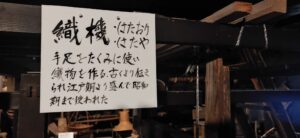 織機 ・はたおり
・はたや
手足をたくみに使い
織物を作る、古くより伝え
られ江戸期より盛んで昭和
初まで使われた